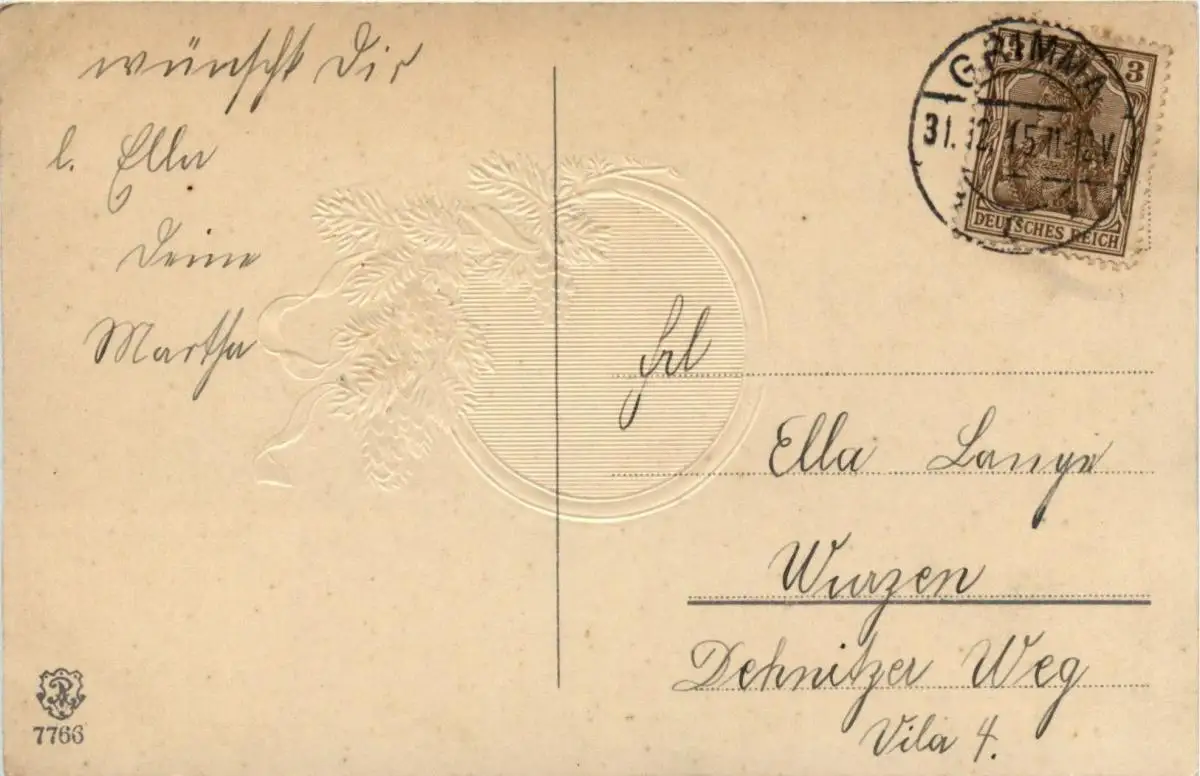 wünscht Dir
l. Ella
Deine
Martha
7766
GRIMMA
31.12.15 11-12V
3
DEUTSCHES REICH
Frl
Ella Lange
Wurzen
Dehnitzer Weg
Vila 4.